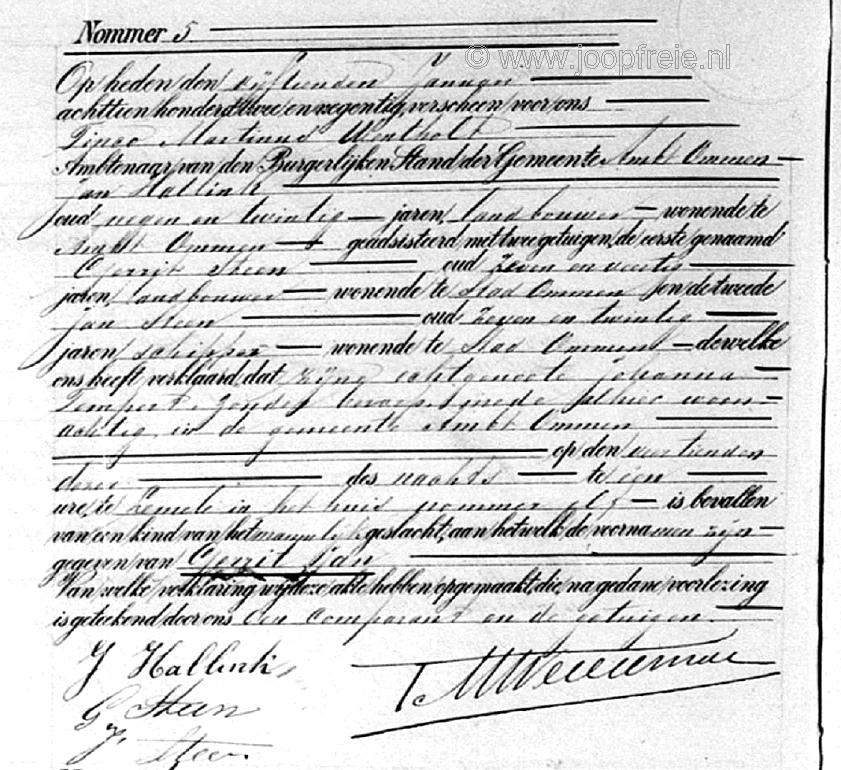 © www.joopfreie.nl
Nommer 5
Op heden den vijftienden Januari
achttien honderd twee en negentig, verscheen voor ons
Martinus
Ambtenaar van den Burgerlijken Stand der Gemeente Ambt Ommen
Jan Hallink
oud negen en twintig jaren, landbouwer wonende te
Ambt Ommen geadsisteerd met twee getuigen, de eerste genaamd
Gerrit Steen oud zeven en veertig
jaren, landbouwer wonende te Stad Ommen en de tweede
Jan Steen oud zeven en twintig
jaren, schipper wonende te Stad Ommen dewelke
ons heeft verklaard, dat zijne echtgenoote Johanna
Tempert, zonder beroep, mede alhier woon-
achtig, in de gemeente Ambt Ommen
op den veertienden
dezer des nachts te een
ure, te Zemele in het huis nommer is bevallen
van een kind van het mannelijk geslacht, aan hetwelk de voornamen zijn
gegeven van Gerrit Jan
Van welke verklaring wij deze akte hebben opgemaakt, die, na gedane voorlezing
is geteekend door ons den comparant en de getuigen.
J Hallink
G Steen
J. Steen